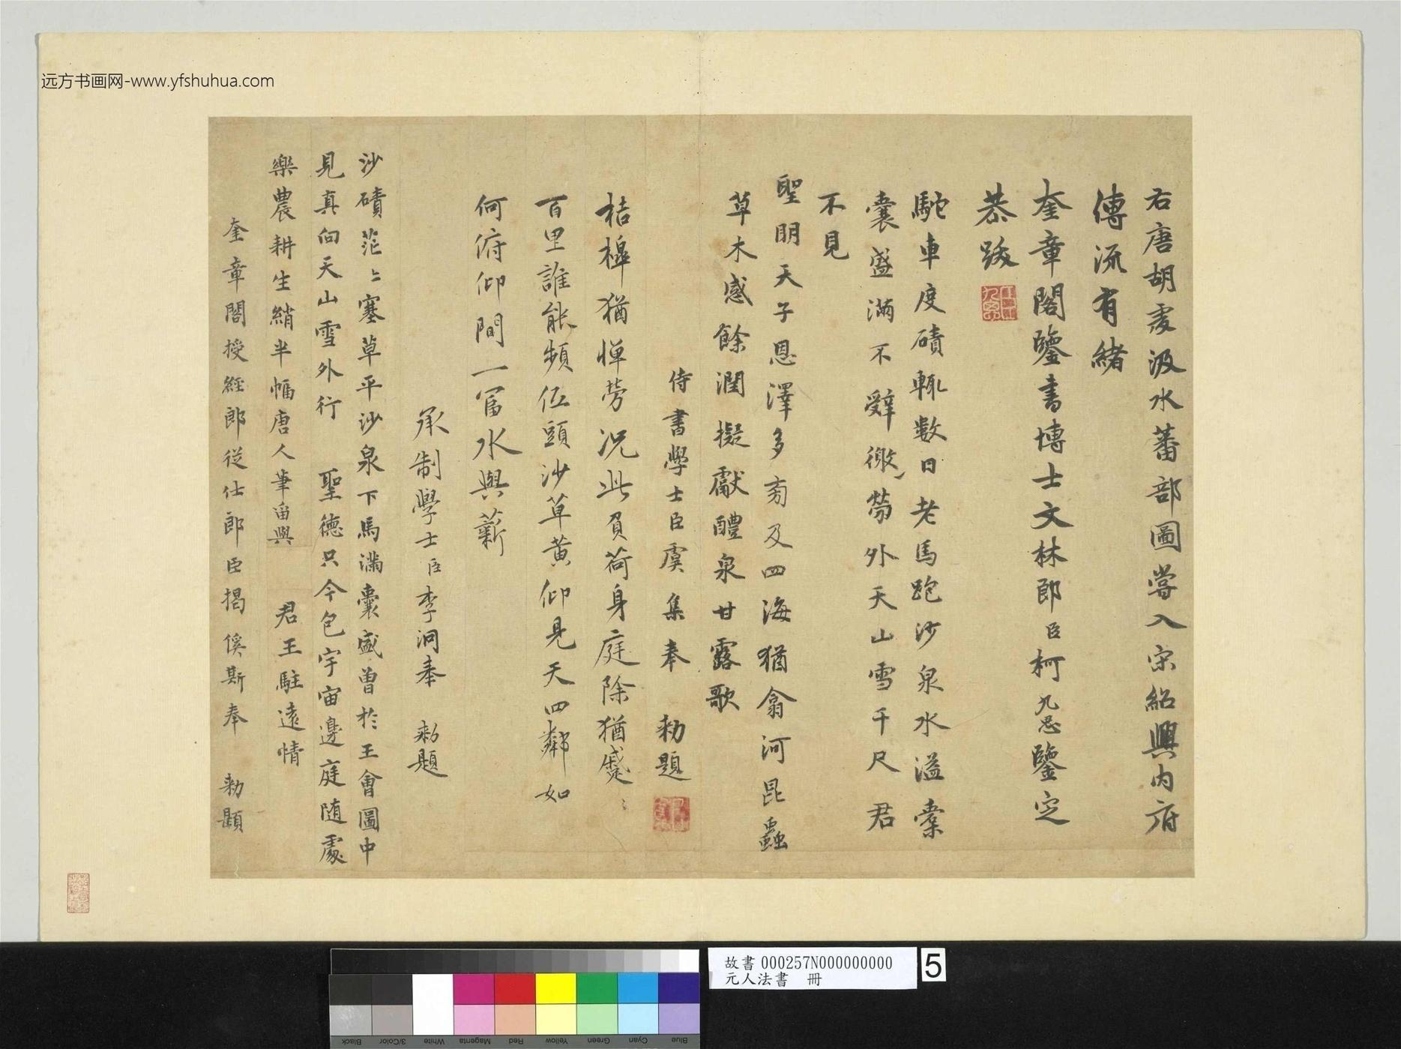 右唐胡虔汲水蕃部圖嘗入宋紹興内府
傳流有緒
奎章閣鑒書博士文林郎臣柯九思鑒定
恭跋
駝車度磧輒數日老馬跑沙泉水溢橐
囊盛滿不辭徼勞外天山雪千尺君
不見
聖明天子恩澤多旁及四海猶翕河昆蟲
草木感餘潤擬獻醴泉甘露歌
侍書學士臣虞集奉 勅題
桔槹猶憚勞况此負荷身庭除猶蹙〻
百里誰能頻低頭沙草黄仰見天四鄰如
何俯仰間一富水與薪
承制學士臣李泂奉 勅題
沙磧茫〻塞草平沙泉下馬滿囊盛曾於王會圖中
見真向天山雪外行 聖德只今包宇宙邊庭随處
樂農耕生綃半幅唐人筆留與 君王駐遠情
奎章閣授經郎從仕郎臣揭傒斯奉 勅題
远方书画网-www.yfshuhua.com
故書 000257N000000000
元人法書 冊
5
Black
3/Color
White
Magenta
Red
Yellow
Green
Cyan
Blue